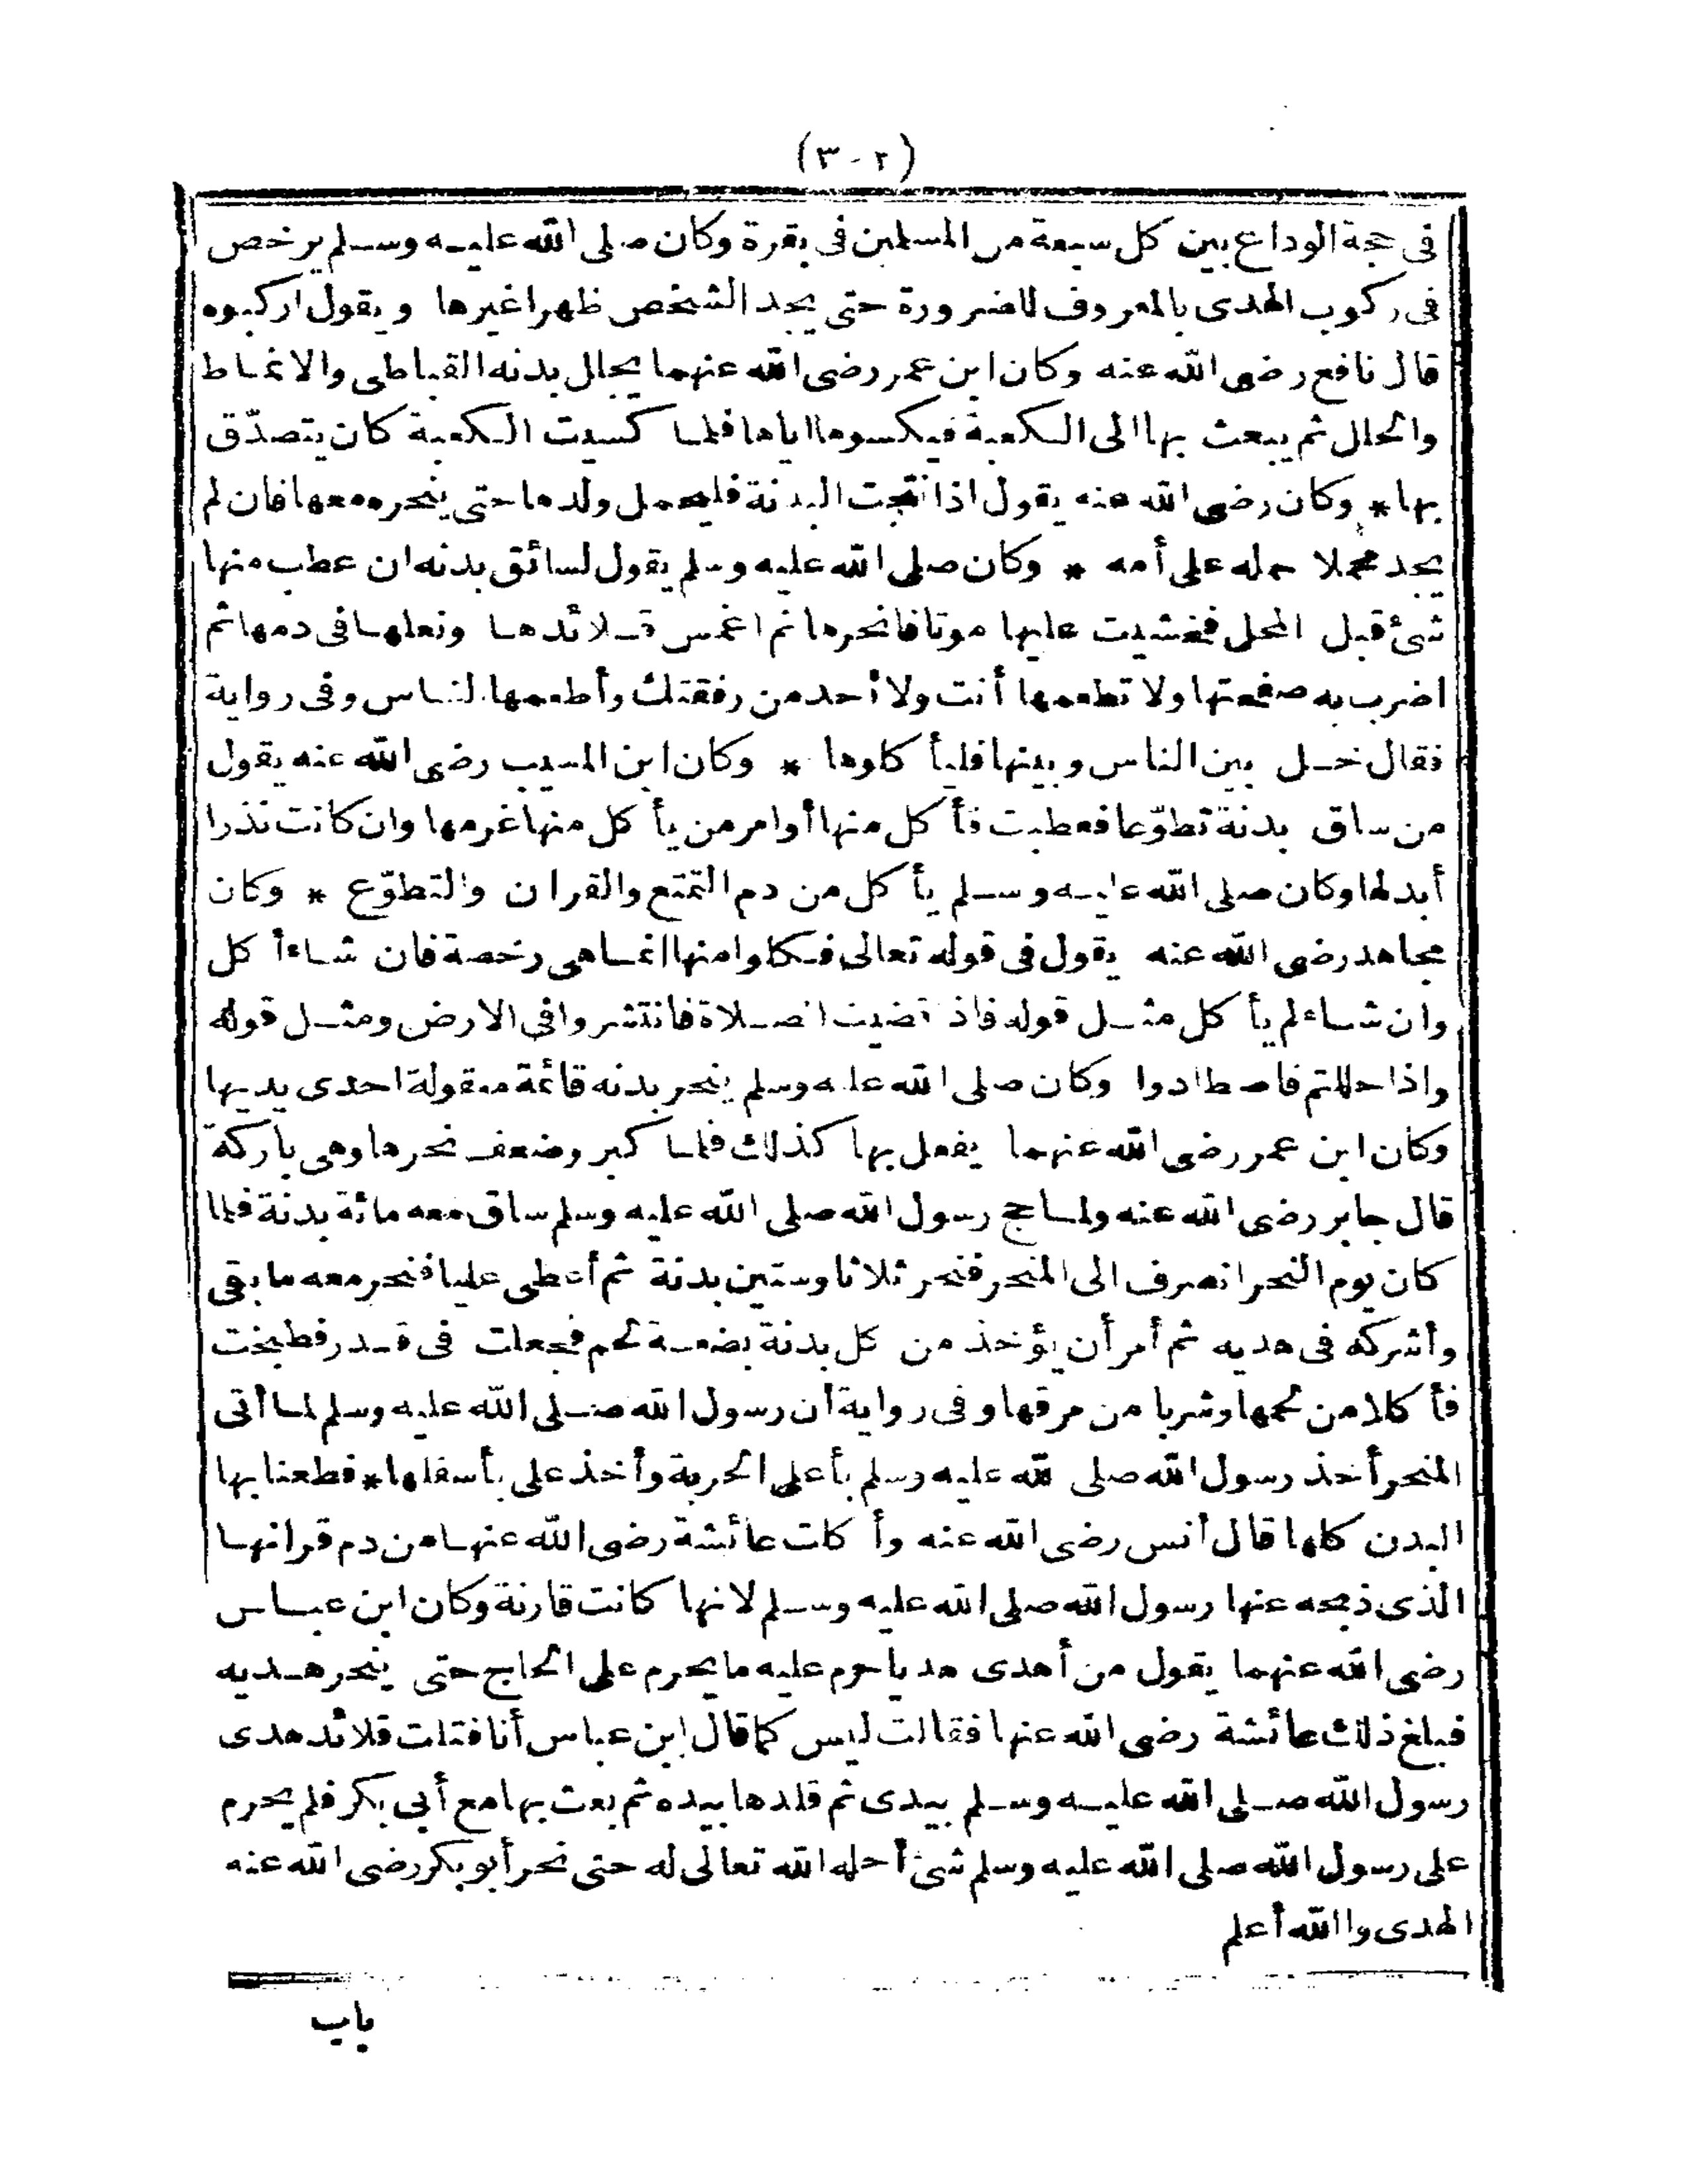 (٣٠٢)
فى حجة الوداع بين كل سبعة من المسلمين فى بقرة وكان صلى الله عليه وسلم يرخص
فى ركوب الهدى بالمعروف للضرورة حتى يجد الشخص ظهرا غيرها ويقول اركبوه
قال نافع رضى الله عنه وكان ابن عمر رضى الله عنهما يجلل بدنه القباطى والانماط
والحلل ثم يبعث بها الى الكعبة فيكسوها اياها فلما كسيت الكعبة كان يتصدّق
بها * وكان رضى الله عنه يقول اذا نتجت البدنة فليحمل ولدها حتى ينحره معها فان لم
يجد محملا حمله على أمه * وكان صلى الله عليه وسلم يقول لسائق بدنه ان عطب منها
شئ قبل المحل فخشيت عليها موتا فانحرها ثم اغمس قلائدها ونعلها فى دمها ثم
اضرب به صفحتها ولا تطعمها أنت ولا أحد من رفقتك وأطعمها للناس وفى رواية
فقال خل بين الناس وبينها فليأكلوها * وكان ابن المسيب رضى الله عنه يقول
من ساق بدنة تطوّعا فعطبت فأكل منها أو امر من يأكل منها غرمها وان كانت نذرا
أبدلها وكان صلى الله عليه وسلم يأكل من دم التمتع والقران والتطوّع * وكان
مجاهد رضى الله عنه يقول فى قوله تعالى فكلوا منها انما هى رخصة فان شاء أكل
وان شاء لم يأكل مثل قوله فاذا قضيت الصلاة فانتشروا فى الارض ومثل قوله
واذا حللتم فاصطادوا وكان صلى الله عليه وسلم ينحر بدنه قائمة معقولة احدى يديها
وكان ابن عمر رضى الله عنهما يفعل بها كذلك فلما كبر وضعف نحرها وهى باركة
قال جابر رضى الله عنه ولما حج رسول الله صلى الله عليه وسلم ساق معه مائة بدنة فلما
كان يوم النحر انصرف الى المنحر فنحر ثلاثا وستين بدنة ثم أعطى عليا فنحر معه ما بقى
وأشركه فى هديه ثم أمر أن يؤخذ من كل بدنة بضعة لحم فجعلت فى قدر فطبخت
فأكلا من لحمها وشربا من مرقها وفى رواية أن رسول الله صلى الله عليه وسلم لما أتى
المنحر أخذ رسول الله صلى الله عليه وسلم بأعلى الحربة وأخذ على بأسفلها * فطعنا بها
البدن كلها قال أنس رضى الله عنه وأكلت عائشة رضى الله عنها من دم قرانها
الذى ذبحه عنها رسول الله صلى الله عليه وسلم لانها كانت قارنة وكان ابن عباس
رضى الله عنهما يقول من أهدى هديا حرم عليه ما يحرم على الحاج حتى ينحر هديه
فبلغ ذلك عائشة رضى الله عنها فقالت ليس كما قال ابن عباس أنا فتلت قلائد هدى
رسول الله صلى الله عليه وسلم بيدى ثم قلدها بيده ثم بعث بها مع أبى بكر فلم يحرم
على رسول الله صلى الله عليه وسلم شئ أحله الله تعالى له حتى نحر أبو بكر رضى الله عنه
الهدى والله أعلم
باب